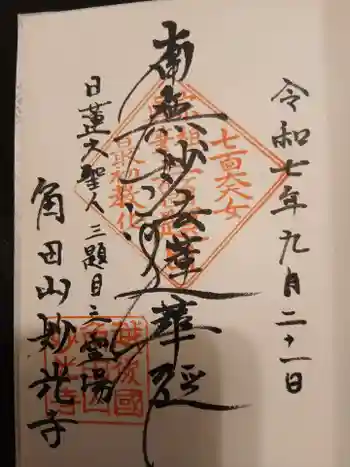 令和七年九月二十一日
南無妙法蓮華経
七面大天女
日蓮大聖人三題目之霊場
角田山妙光寺
越後國
角田山
妙光寺